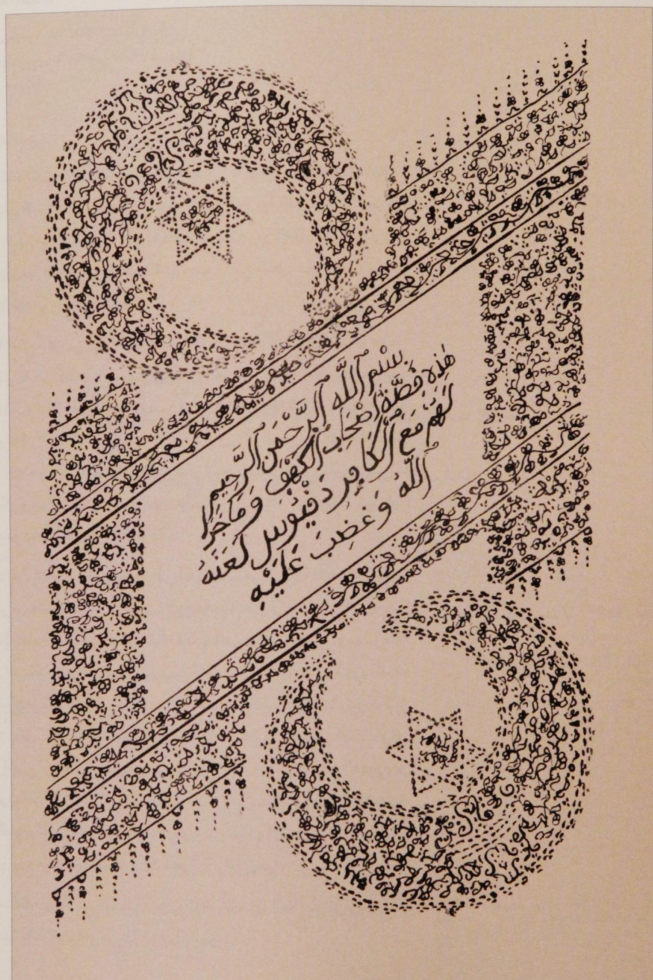 بِسْمِ اللَّهِ الرَّحْمَنِ الرَّحِيمِ
هٰذِهِ قِصَّةُ اَصْحَابِ الْكَهْفِ وَمَاجَرَا
لَهُمْ مَعَ الْكَافِرِ دَقْيَنُوسِ لَعَنَهُ
اللَّهُ وَغَضِبَ عَلَيْهِ